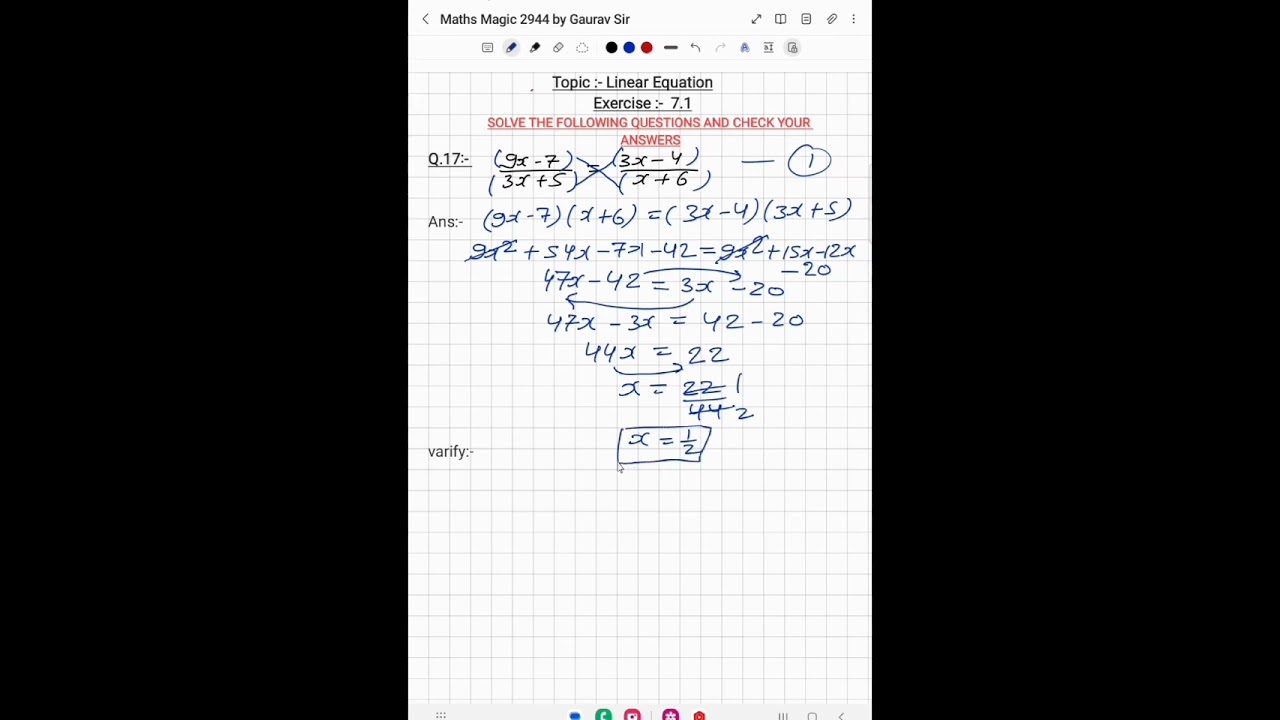 Maths Magic 2944 by Gaurav Sir
Topic :- Linear Equation
Exercise :- 7.1
SOLVE THE FOLLOWING QUESTIONS AND CHECK YOUR
ANSWERS
Q.17:- (9x-7)/(3x+5) = (3x-4)/(x+6) — 1
Ans:- (9x-7)(x+6) = (3x-4)(3x+5)
9x² + 54x - 7x - 42 = 9x² + 15x - 12x
- 20
47x - 42 = 3x - 20
47x - 3x = 42 - 20
44x = 22
x = 22/44 1/2
x = 1/2
varify:-